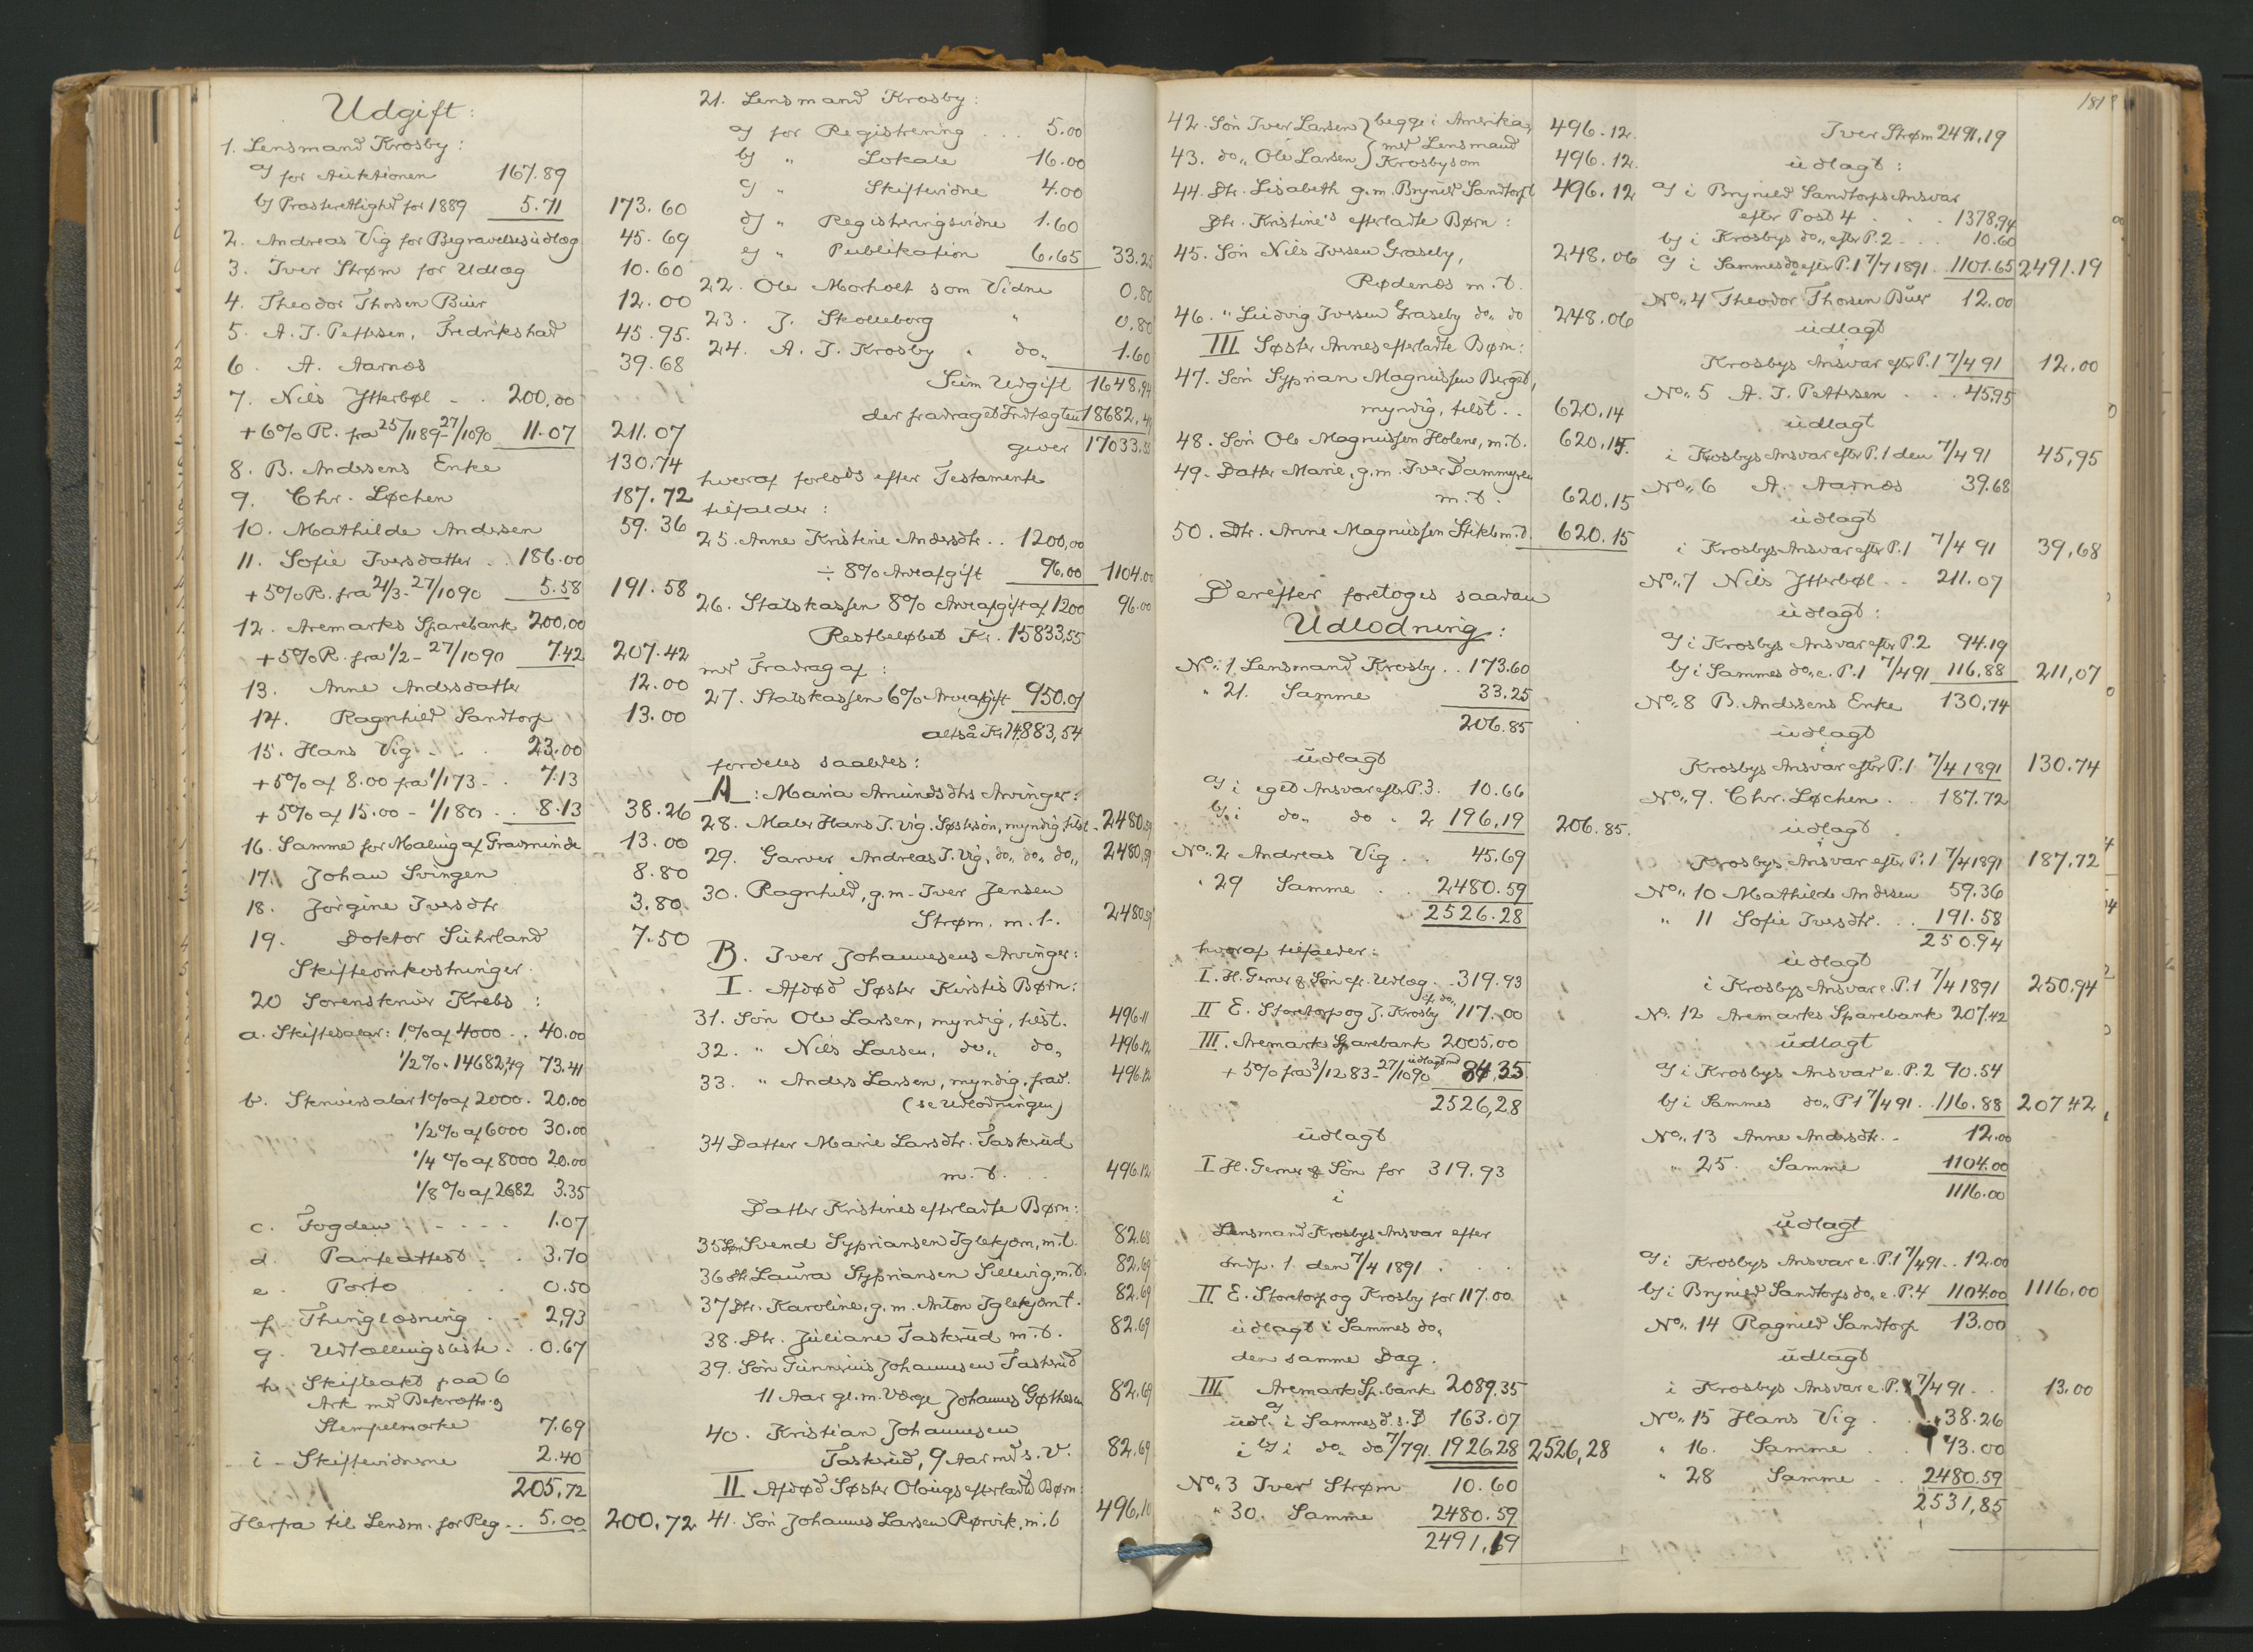 Udgift:
1. Lensmand Krosby:
a) for Auktionen 167.89
b) Prosterettighed for 1889 5.71 173.60
2. Andreas Vig for Begravelsesudlæg 45.69
3. Iver Strøm for Udlæg 10.60
4. Theodor Thorsen Buer 12.00
5. A. J. Pettersen, Fredrikshald 45.95
6. A. Aarnæs 39.68
7. Nils Ytterbøl - . 200,00
+ 6% R. fra 25/11 89 - 27/10 90 11.07 211.07
8. B. Andersens Enke 130.74
9. Chr. Løchen 187.72
10. Mathilde Andersen 59.36
11. Sofie Iversdatter . . 186.00
+ 5% R. fra 21/3 - 27/10 90 5.58 191.58
12. Aremarks Sparebank 200,00
+ 5% R. fra 1/2 - 27/10 90 7.42 207.42
13. Anne Andersdatter 12.00
14. Ragnhild Sandtorp 13.00
15. Hans Vig - . . 23.00
+ 5% af 8.00 fra 1/1 73 - . 7.13
+ 5% af 15.00 - 1/1 80 . . 8.13 38.26
16. Samme for Maling af Gravminde 13.00
17. Johan Svingen 8.80
18. Jørgine Iversdtr 3.80
19. Doktor Suhrland 7.50
Skifteomkostninger:
20 Sorenskriver Krebs:
a. Skiftesalær: 1% af 4000 . . 40.00
1/2% . 14682,49 73.41
b. Skriversalær 1% af 2000 . 20.00
1/2% af 6000 30.00
1/4 % af 8000 20.00
1/8 % af 2682 3.35
c. Fogden - - - - 1.07
d. Panteattest . . 3.70
e. Porto . . 0.50
f. Thinglæsning . - 2,93
g. Udtællingsliste . . 0.67
h. Skifteakt paa 6
Ark med Bekræftn. og
Stempelmærke 7.69
i - Skiftevidnerne 2.40
205,72
Herfra til Lensm. for Reg . . 5.00 200.72
21. Lensmand Krosby:
a) for Registrering . . . 5.00
b) " Lokale 16.00
c) " Skiftevidne 4.00
d) " Registreringsvidne 1.60
e) " Publikation 6.65 33.25
22. Ole Morholt som Vidne 0,80
23. J. Skolleborg " 0,80
24. A. J. Krosby " do" 1.60
Sum Udgift 1648,94
der fradraget Indtægten 18682,49
giver 17033,55
hvoraf forlods efter Testamente
tilfalder:
25. Anne Kristine Andersdtr . . 1200,00
÷ 8% Arveafgift 96.00 1104.00
26. Statskassen 8% Arveafgift af 1200 96.00
Restbeløbet Kr. 15833,55
med Fradrag af:
27. Statskassen 6% Arveafgift 950.01
altså Kr 14883,54
fordeles saaledes:
A: Maria Amundsdtrs Arvinger:
28. Maler Hans J. Vig. Søstersøn, myndig, tilst - 2480,59
29. Garver Andreas J. Vig, do" do" do" 2480,59
30. Ragnhild, g. m. Iver Jensen
Strøm. m. t. 2480,59
B. Iver Johannesens Arvinger:
I. Afdød Søster Kirstis Børn:
31. Søn Ole Larsen, myndig, tilst. 496.11
32. " Nils Larsen, do" do" 496.12
33. " Anders Larsen, myndig, frad. 496.12
(se Udlodningen)
34 Datter Marie Larsdtr. Taskerud
m. t. . . 496.12
Datter Kristines efterladte Børn:
35 Søn Svend Sypriansen Iglekjøn, m. t. 82.68
36 dtr. Laura Sypriansen Sillevig, m. t. 82.69
37 Dtr. Karoline, g. m. Anton Iglekjøn t. 82.69
38. Dtr. Juliane Taskerud m. t. 82.69
39. Søn Gunnerius Johannesen Taskerud
11 Aar gl. m. Værge Johannes Gøthesen 82,69
40. Kristian Johannesen
Taskerud, 9 Aar med s. V. 82,69
II Afdød Søster Olougs efterladte Børn:
41. Søn Johannes Larsen Rørvik, m. t 496,10
181
42. Søn Iver Larsen } begge i Amerika, 496.12.
43. do" Ole Larsen } med Lensmand Krosby som 496.12.
44. Dtr. Lisabeth g. m. Brynild Sandtorp 496.12
Dtr. Kristine's efterladte Børn:
45. Søn Nils Iversen Graseby, 248.06
Rødenæs m. t.
46. " Ludvig Iversen Graseby do" do 248.06
III Søster Annes efterladte Børn:
47. Søn Syprian Magnussen Berget,
myndig, tilst . . 620.14
48. Søn Ole Magnussen Holene, m. t. 620.15.
49. Datter Marie, g. m. Iver Dammyren
m. t. 620.15
50. Dtr. Anne Magnussen Stikle m. t. 620.15
Derefter foretoges saadan
Udlodning:
No. 1 Lensmand Krosby . . 173.60
" 21. Samme 33.25
206.85
udlagt
a) i eget Ansvar efter P. 3. 10.66
b) i do" do " 2 196.19 206.85.
No. 2 Andreas Vig . . 45.69
" 29 Samme . . 2480.59
2526.28
hvoraf tilfalder:
I. H. Gerner & Søn efr. Udlæg . . 319.93
II E. Storetorp og J. Krosby ef. do" 117.00
III. Aremarks Sparebank 2005,00
+ 5% fra 3/12 83 - 27/10 90 udlagt med 84,35
2526,28
udlagt
I. H. Gerner & Søn for 319.93
i
Lensmand Krosbys Ansvar efter
Indp. 1. den 7/4 1891 . . .
II E. Storetorp og Krosby for 117.00
udlagt i Sammes do"
den samme Dag.
III Aremark Sp.bank 2089.35
udl. a) i Sammes d. s. D 163.07
i b) i do" do 7/7 91. 1926.28 2526,28
No. 3 Iver Strøm 10.60
" 30. Samme 2480.59
2491,19
Iver Strøm 2491,19
udlagt:
a) i Brynild Sandtorps Ansvar
efter Post 4 . . . 1378,94
b) i Krosbys do" efter P. 2 . . 10.60
c) i Sammes do efter P. 1 7/7 1891 . 1101.65 2491.19
No. 4 Theodor Thorsen Buer 12.00
udlagt
i
Krosbys Ansvar efter P. 1 7/4 91 12.00
No. 5 A. J. Pettersen . . . 45,95
udlagt
i Krosbys Ansvar efter P. 1 den 7/4 91 45,95
No. 6 A. Aarnæs 39.68
udlagt
i Krosbys Ansvar efter P. 1 7/4 91 39,68
No. 7 Nils Ytterbøl . . 211.07
udlagt:
a) i Krosbys Ansvar efter P. 2. 94.19
b) i Sammes do. e. P. 1 7/4 91 116,88 211,07
No. 8 B. Andersens Enke 130,74
udlagt
i
Krosbys Ansvar efter P. 1 7/4 1891 130.74
No. 9. Chr. Løchen . . 187.72
udlagt
i
Krosbys Ansvar efter P. 1 7/4 1891 187.72
No. 10 Mathilde Andersen 59.36
" 11 Sofie Iversdtr. . . 191.58
250.94
udlagt
i Krosbys Ansvar e. P. 1 7/4 1891 250,94
No. 12 Aremarks Sparebank 207.42
udlagt
a) i Krosbys Ansvar e. P. 2 90.54
b) i Sammes do" P 1 7/4 91 . . 116.88 207.42
No. 13 Anne Andersdtr. - 12.00
" 25. Samme 1104.00
1116.00
udlagt
a) i Krosbys Ansvar e. P. 1 7/4 91 . . 12.00
b) i Brynild Sandtorps do" e. P. 4 1104.00 1116,00
No. 14 Ragnild Sandtorp 13.00
udlagt
i Krosbys Ansvar e. P. 1 7/4 91 . . 13.00
No. 15 Hans Vig . . . 38.26
" 16. Samme . . 13.00
" 28 Samme . . 2480.59
2531,85